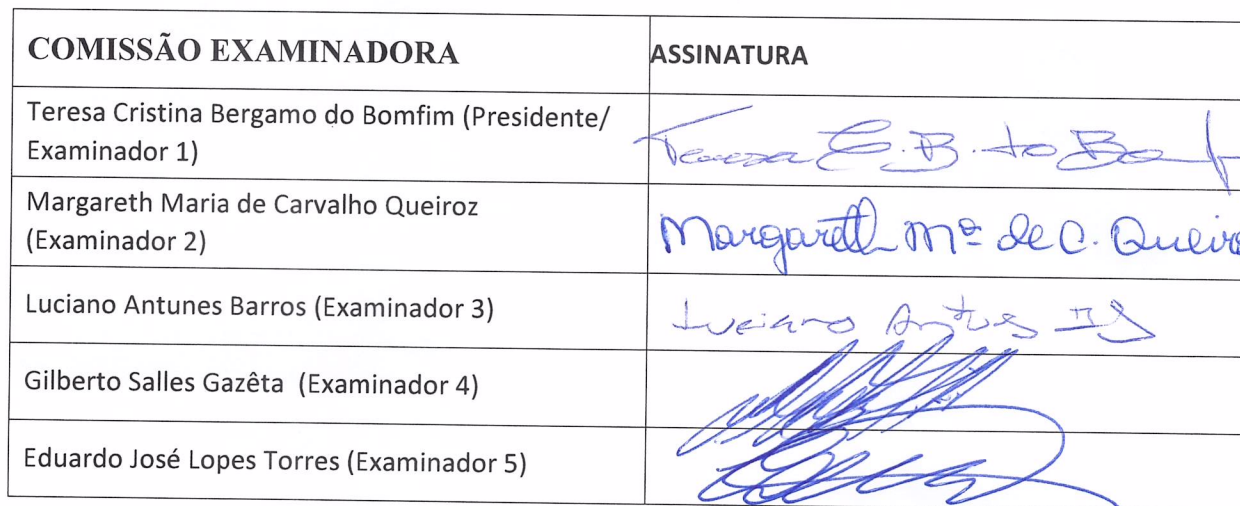 COMISSÃO EXAMINADORA
ASSINATURA
Teresa Cristina Bergamo do Bomfim (Presidente/
Examinador 1)
Teresa C. B. do Bomf
Margareth Maria de Carvalho Queiroz
(Examinador 2)
Margareth Mª de C. Queiro
Luciano Antunes Barros (Examinador 3)
Luciano Antunes
Gilberto Salles Gazêta (Examinador 4)
Eduardo José Lopes Torres (Examinador 5)